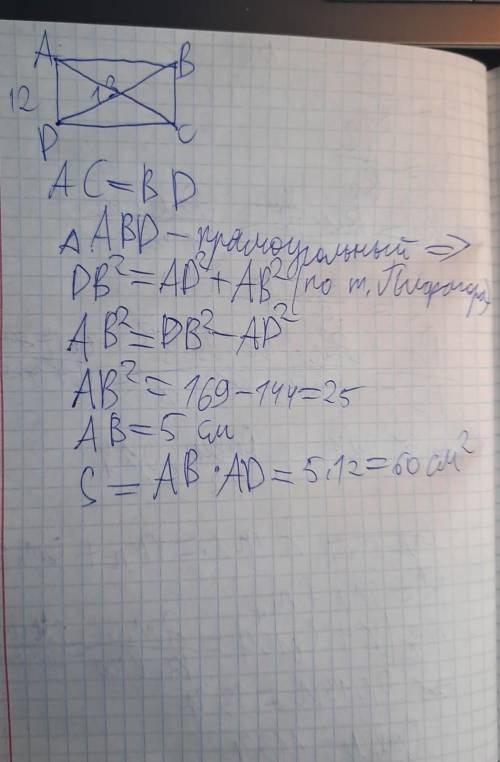 A B
12 13
D C
AC=BD
△ ABD – прямоугольный =>
DB²=AD²+AB² (по т. Пифагора)
AB²=DB²-AD²
AB²=169-144=25
AB=5 см
S=AB·AD=5·12=60 см²